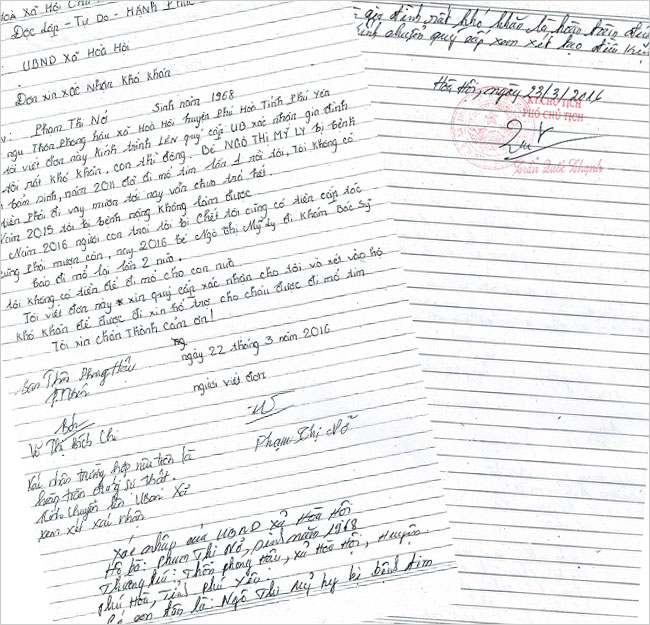 hoà Xã Hội Chủ
Độc Lập - Tự Do - HẠNH PHÚC
UBND Xã Hoà Hội
Đơn xin xác Nhận khó khăn
Phạm Thị Nở Sinh năm 1968
ngụ Thôn Phong hậu xã Hoà Hội huyện Phú Hoà Tỉnh Phú Yên
tôi viết đơn này Kính trình lên quý cấp UB xác nhận gia đình
tôi rất khó khăn, con thì đông. Bé NGÔ THỊ MỸ LY bị bệnh
bẩm sinh, năm 2011 đã đi mổ tim lần 1 rồi tôi, Tôi không có
tiền phải đi vay mượn tới nay vẫn chưa trả hết.
Năm 2015 tôi bị bệnh nặng không làm được
Năm 2016 người con trai tôi bị chết tôi cũng có tiền cấp tóc
cũng phải mượn còn, nay 2016 bé Ngô Thị Mỹ Ly đi khám Bác Sỹ
bảo đi mổ lại lần 2 nữa.
tôi không có tiền để đi mổ cho con nữa
Tôi viết đơn này xin quý cấp xác nhận cho tôi và xét vào hộ
khó khăn để được đi xin hỗ trợ cho cháu được đi mổ tim
Tôi xin chân Thành cảm ơn!
ngày 22 tháng 3 năm 2016
Ban Thôn Phong Hậu
người viết đơn
Võ Thị Bích Chi
Phạm Thị Nở
Xác nhận trường hợp nêu trên là
hoàn toàn đúng sự thật.
Kính chuyển lên UBND Xã
xem xét xác nhận
Xác nhập của UBND xã Hoà Hội
Hộ bà: Phạm Thị Nở, sinh năm 1968
Thường trú: Thôn phong Hậu, xã Hoà Hội, Huyện
phú Hoà, Tỉnh Phú Yên
có con tên là: Ngô Thị Mỹ ly bị bệnh tim
gia đình rất khó khăn là hoàn toàn đún
Kính chuyển quý cấp xem xét tạo điều kiện
Hòa Hội, ngày 23/3/2016
KT.CHỦ TỊCH
PHÓ CHỦ TỊCH
Trần Quốc Khánh